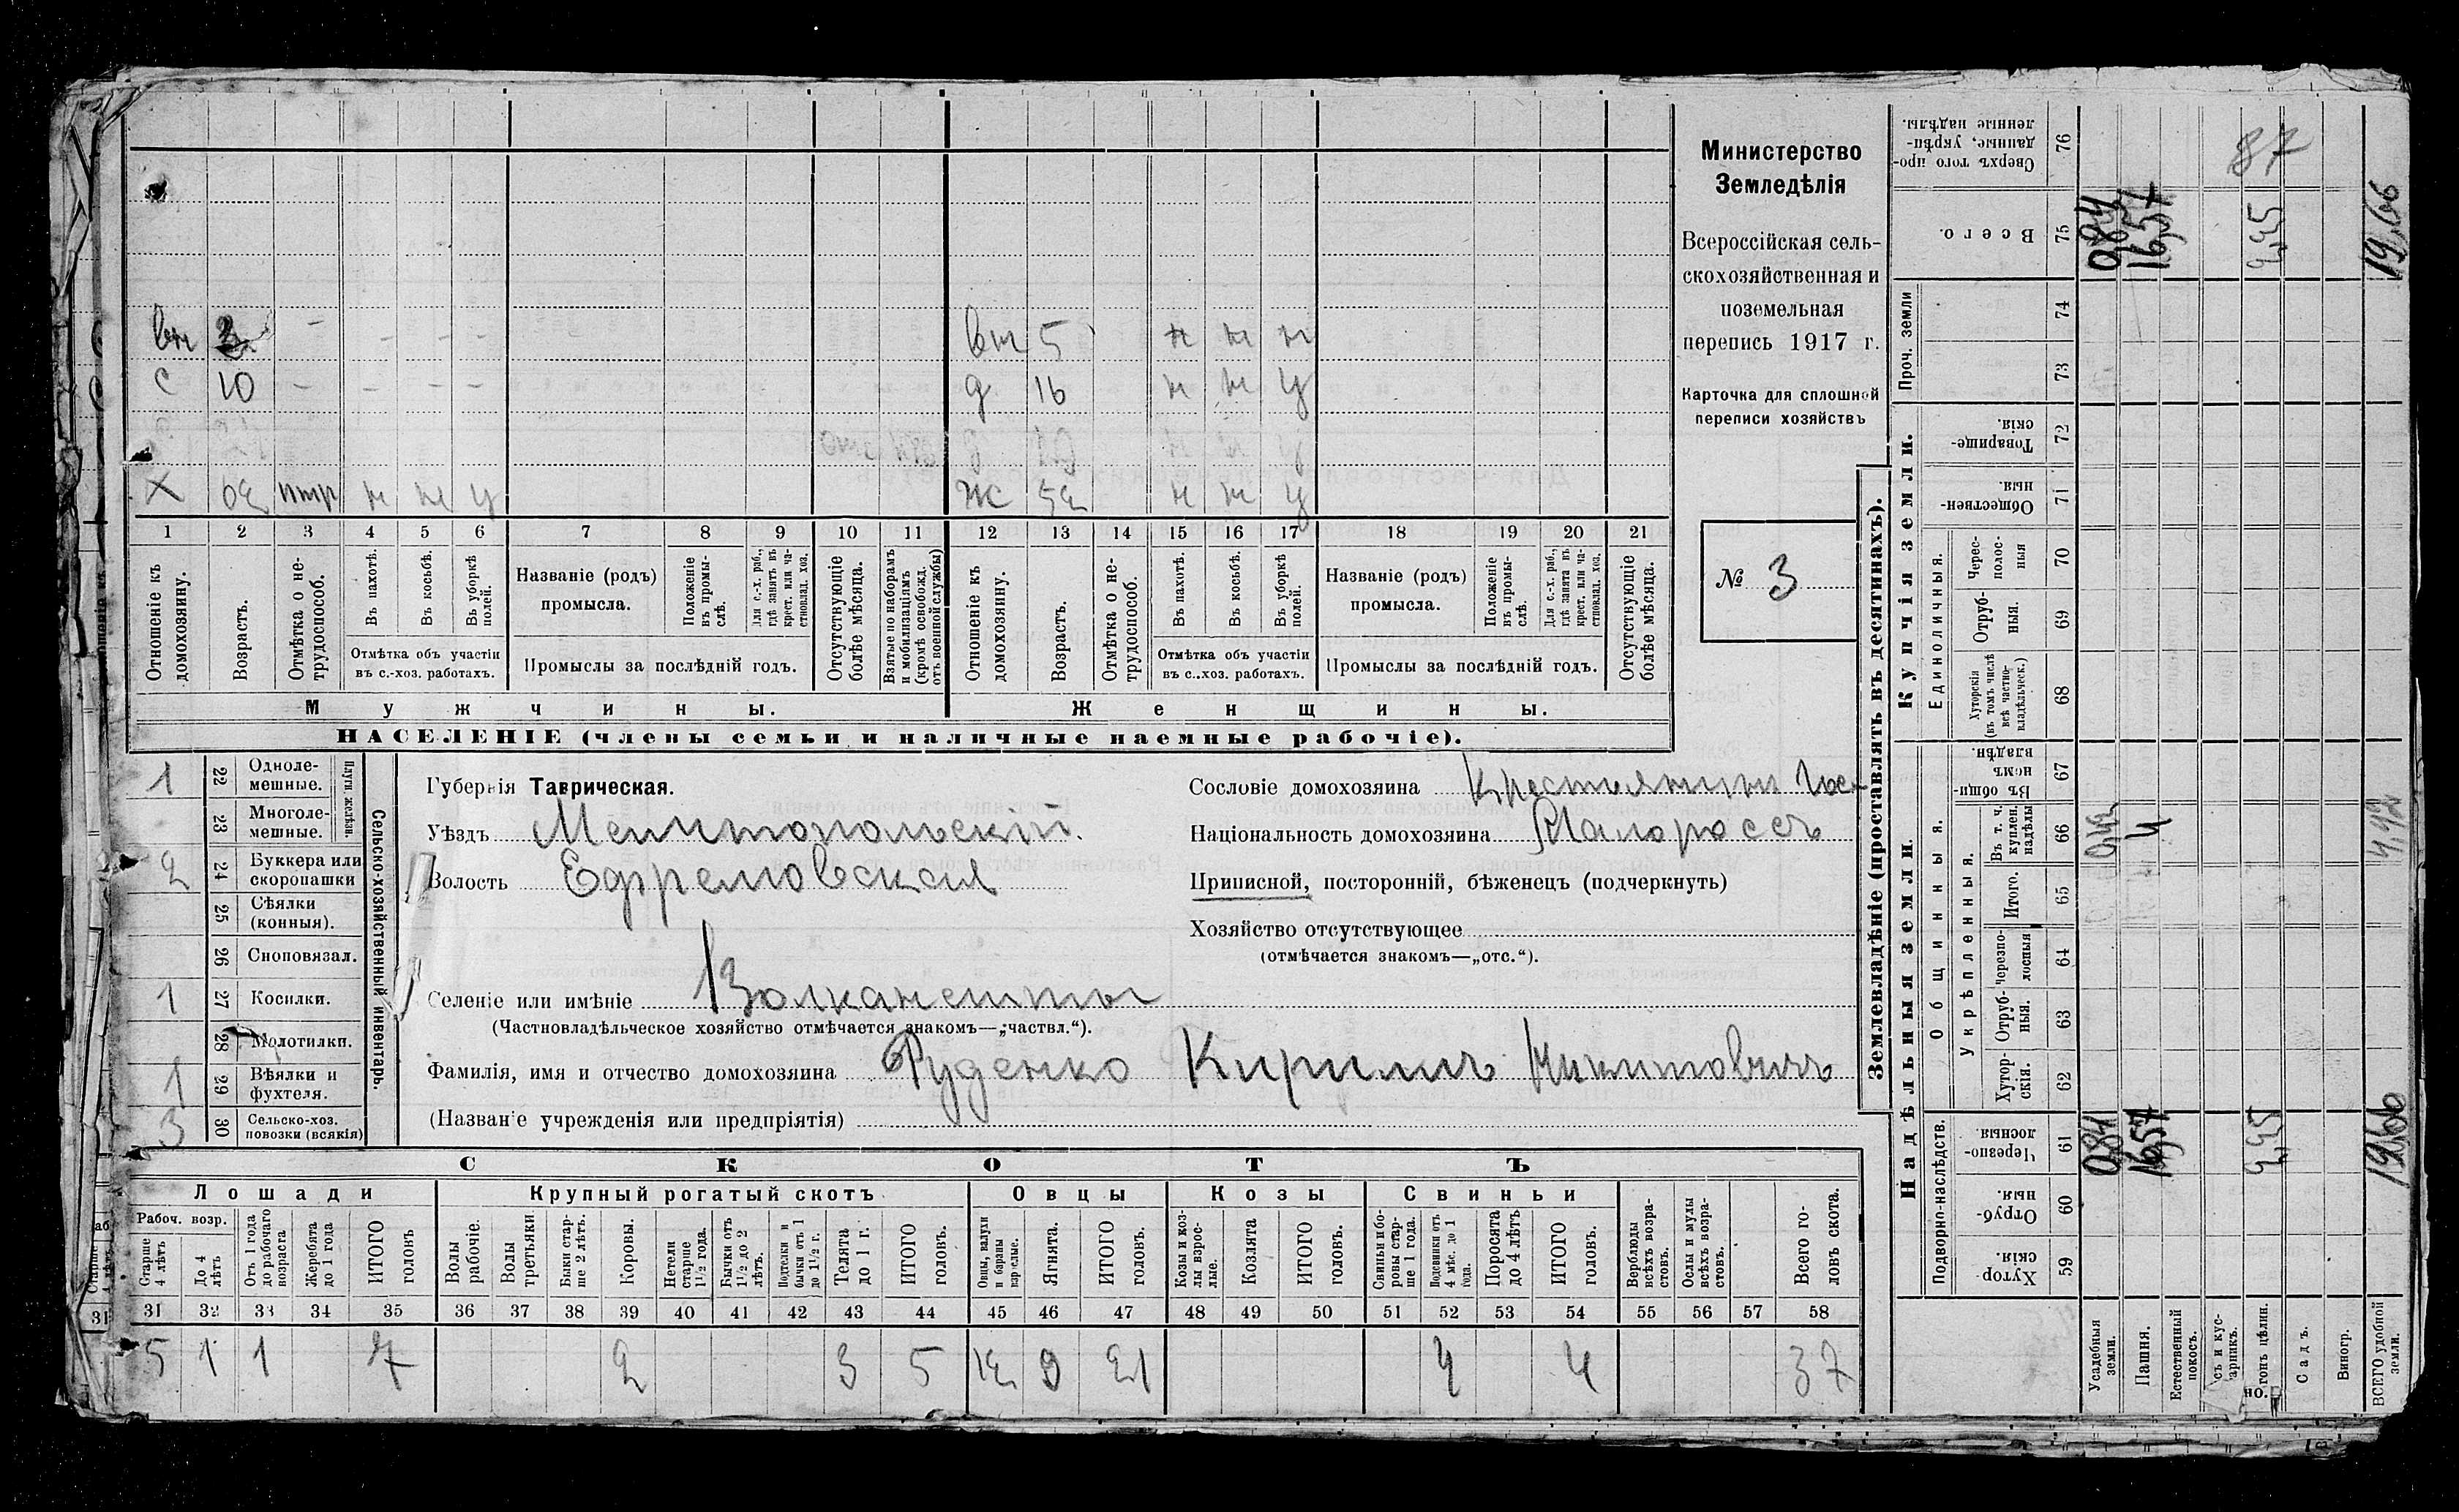 Министерство
Земледѣлія
Всероссійская сель-
скохозяйственная и
поземельная
перепись 1917 г.
Карточка для сплошной
переписи хозяйствъ
№ 3
вн 5 н н н
с 10 – – – –
д 16 н н у
Х н н у
ж 52 н н у
1 2 3 4 5 6 7 8 9 10 11 12 13 14 15 16 17 18 19 20 21
Отношеніе къ домохозяину.
Возрастъ.
Отмѣтка о не-трудоспособ.
Въ пахотѣ.
Въ косьбѣ.
Въ уборкѣ полей.
Отмѣтка объ участіи
въ с.-хоз. работахъ.
Названіе (родъ)
промысла.
Положеніе въ промы-слѣ.
Для с.-х. раб., гдѣ занятъ въ крест. или ча-стновлад. хоз.
Промыслы за послѣдній годъ.
Отсутствующіе болѣе мѣсяца.
Взятые по наборамъ и мобилизаціямъ (кромѣ освобожд. отъ военной службы)
Отношеніе къ домохозяину.
Возрастъ.
Отмѣтка о не-трудоспособ.
Въ пахотѣ.
Въ косьбѣ.
Въ уборкѣ полей.
Отмѣтка объ участіи
въ с..хоз. работахъ.
Названіе (родъ)
промысла.
Положеніе въ промы-слѣ.
Для с.-х. раб., гдѣ занята въ крест. или ча-стновлад. хоз.
Промыслы за послѣдній годъ.
Отсутствующіе болѣе мѣсяца.
Мужчины.
Женщины.
НАСЕЛЕНІЕ (члены семьи и наличные наемные рабочіе).
Сельско-хозяйственный инвентарь.
Плуги желѣзн.
1 22 Одноле-мешные.
23 Многоле-мешные.
2 24 Буккера или скоропашки
25 Сѣялки (конныя).
26 Сноповязал.
1 27 Косилки.
28 Молотилки.
1 29 Вѣялки и фухтеля.
3 30 Сельско-хоз. повозки (всякія)
Губернія Таврическая.
Уѣздъ Мелитопольскій.
Волость Ефремовская
Селеніе или имѣніе Волканешты
(Частновладѣльческое хозяйство отмѣчается знакомъ—„частвл.“).
Фамилія, имя и отчество домохозяина Руденко Кириллъ Никитовичъ
(Названіе учрежденія или предпріятія)
Сословіе домохозяина Крестьянинъ
Національность домохозяина Малороссъ
Приписной, посторонній, бѣженецъ (подчеркнуть)
Хозяйство отсутствующее
(отмѣчается знакомъ—„отс.“).
СКОТЪ
Лошади
Крупный рогатый скотъ
Овцы
Козы
Свиньи
Рабоч. возр.
Старше 4 лѣтъ
До 4 лѣтъ
Отъ 1 года до рабочаго возраста
Жеребята до 1 года
ИТОГО головъ
Волы рабочіе.
Волы третьяки.
Быки стар-ше 2 лѣтъ.
Коровы.
Нетели старше 1½ года.
Бычки отъ 1½ до 2 лѣтъ.
Подтелки и бычки отъ 1 до 1½ г.
Телята до 1 г.
ИТОГО головъ.
Овцы, валухи и бараны взрослые.
Ягнята.
ИТОГО головъ.
Козы и коз-лы взрос-лые.
Козлята
ИТОГО головъ.
Свиньи и бо-ровы стар-ше 1 года.
Подсвинки отъ 4 мѣс. до 1 года.
Поросята до 4 лѣтъ
ИТОГО головъ.
Верблюды всѣхъ возра-стовъ.
Ослы и мулы всѣхъ возра-стовъ.
Всего го-ловъ скота.
31 32 33 34 35 36 37 38 39 40 41 42 43 44 45 46 47 48 49 50 51 52 53 54 55 56 57 58
5 1 1 7 2 3 5 12 9 21 4 4 37
Землевладѣніе (проставлять въ десятинахъ).
Надѣльныя земли.
Купчія земли.
Проч. земли
Подворно-наслѣдств.
Общинныя.
Укрѣпленныя.
Единоличныя.
59 Хутор-скія.
60 Отруб-ныя.
61 Черезпо-лосныя.
62 Хутор-скія.
63 Отруб-ныя.
64 Черезпо-лосныя
65 Итого.
66 Въ т. ч. куплен. надѣлы
67 Въ общи-номъ владѣн.
68 Хуторскія (въ томъ числѣ всѣ частно-владѣльческ.)
69 Отруб-ныя.
70 Черес-полос-ныя
71 Обществен-ныя.
72 Товарище-скія.
73
74
75 Всего.
76 Сверхъ того про-данные, укрѣп-ленные надѣлы.
Усадебныя земли.
0,84 0,42 0,84
Пашня.
16,57 4 16,57
Естественный покосъ.
2,25 2,25
Садъ.
Виногр.
ВСЕГО удобной земли.
19,66 4,42 19,66
87